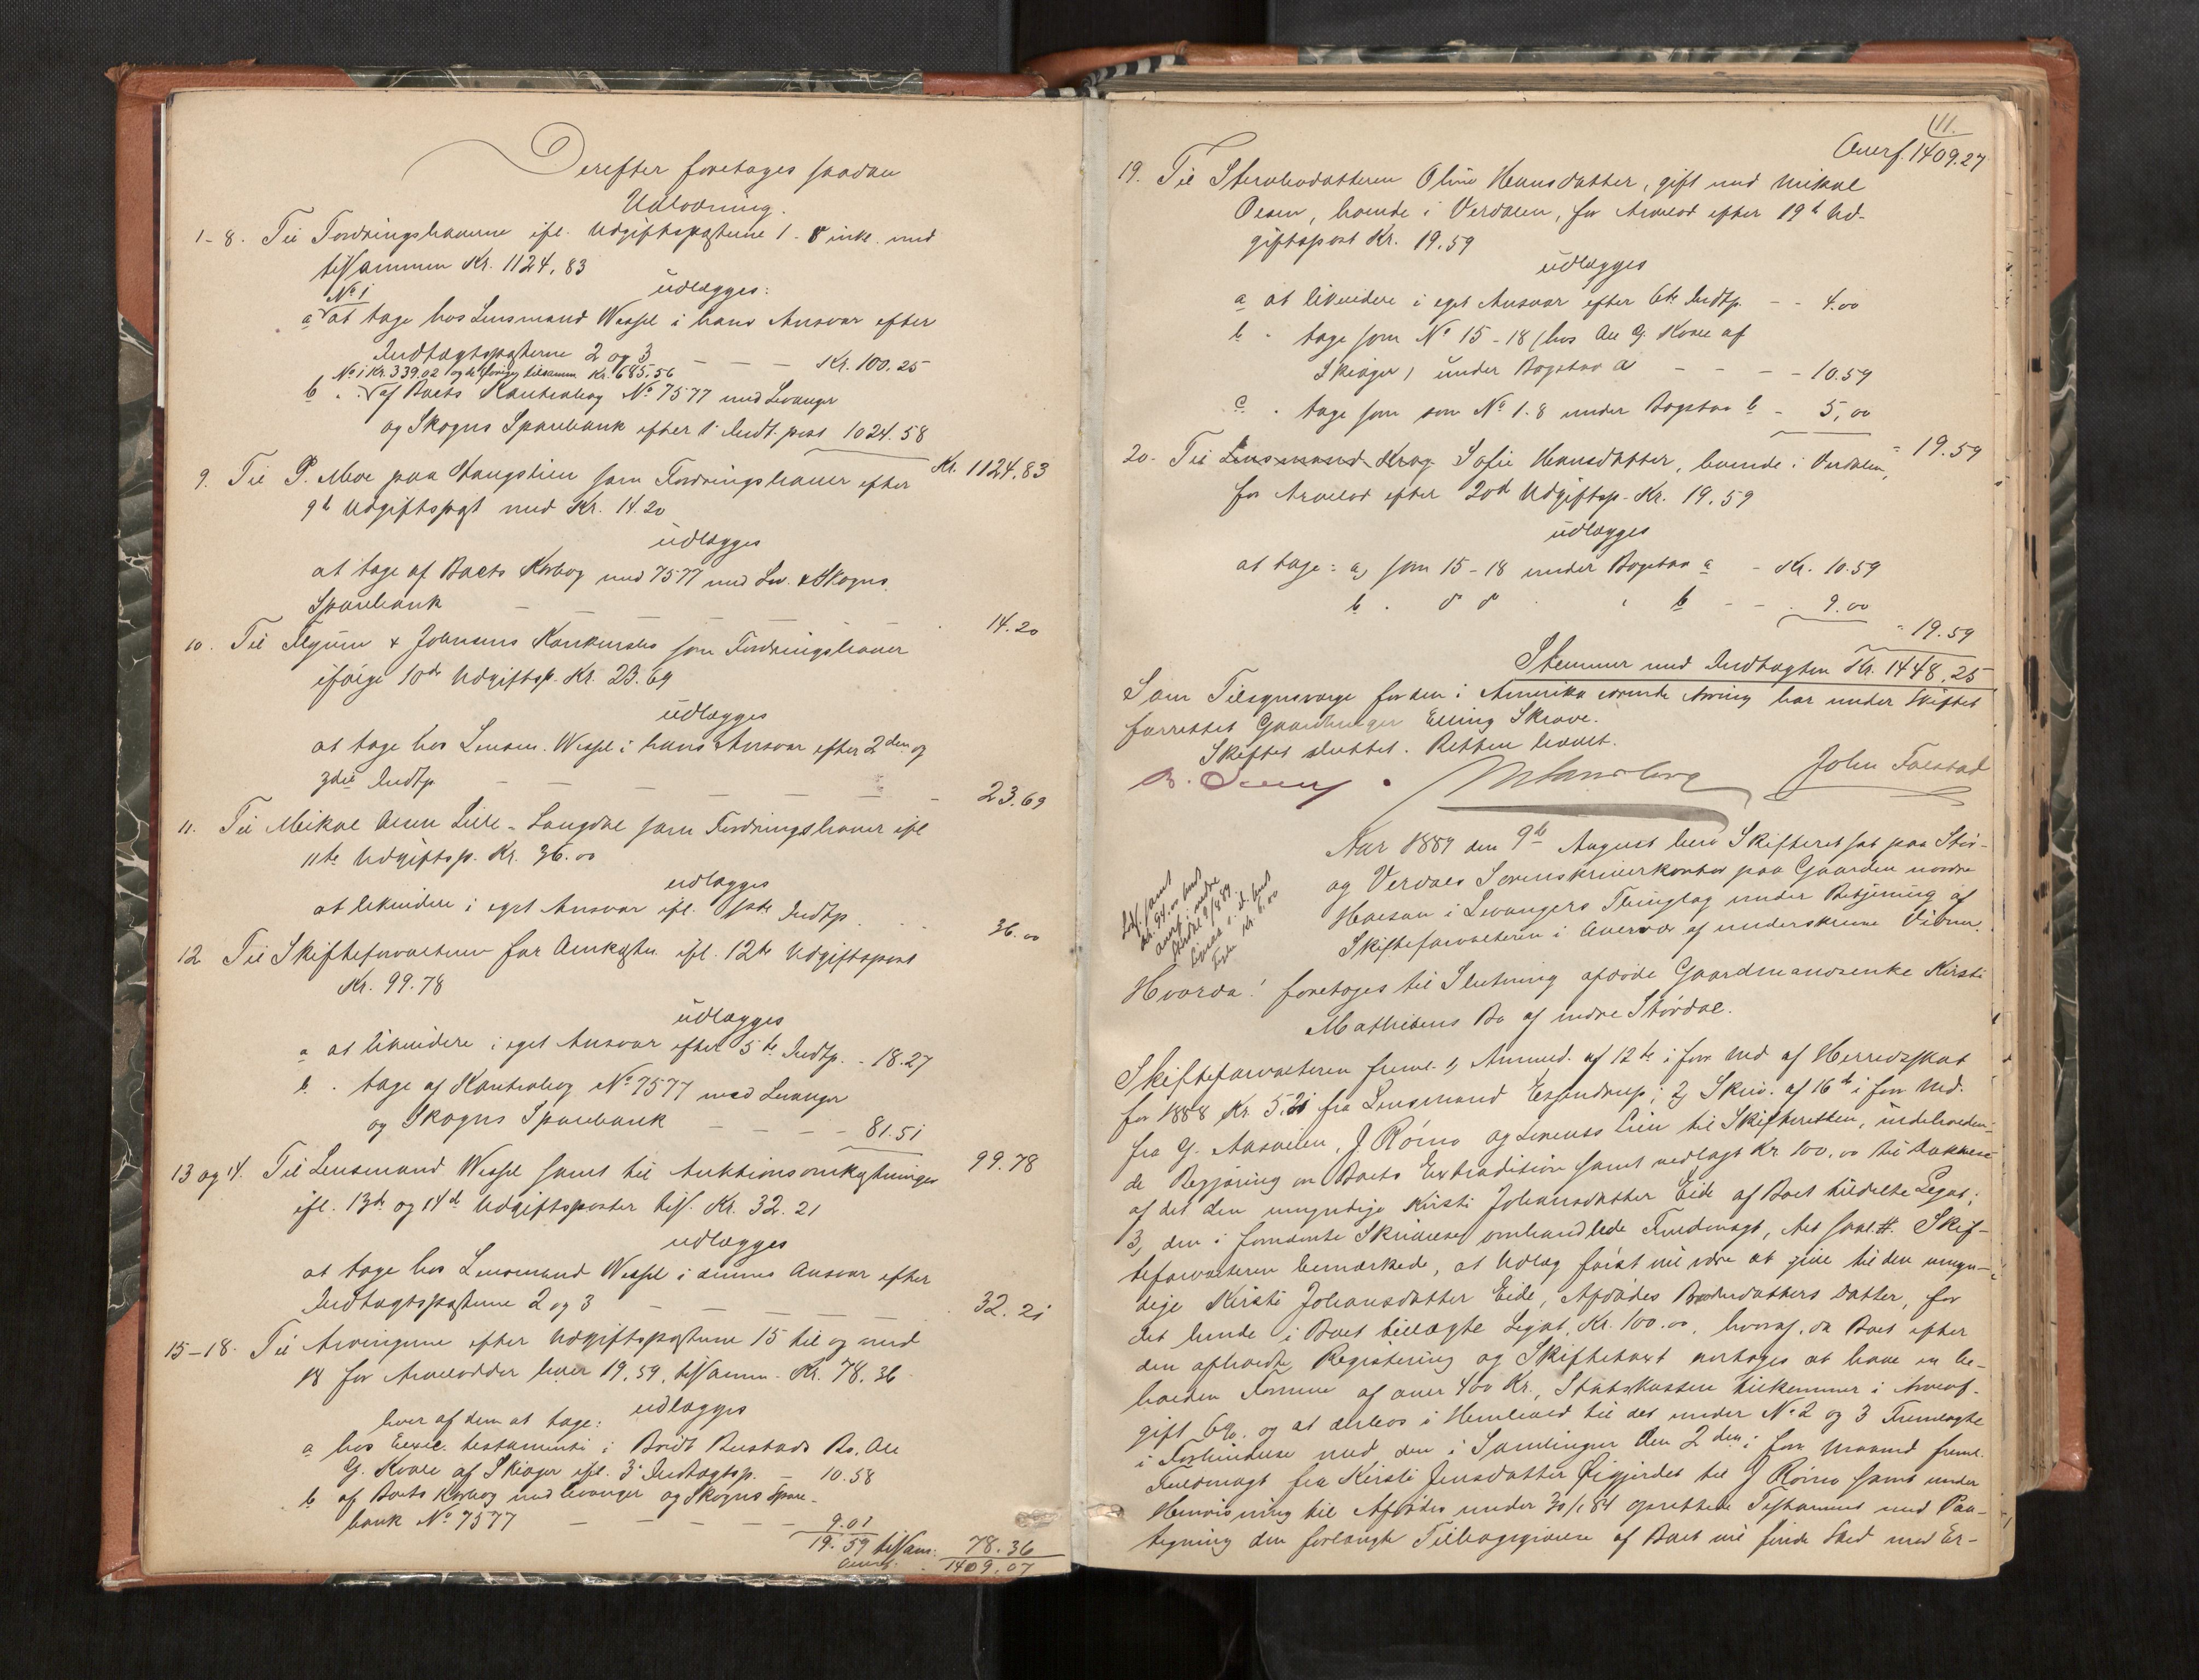 Derefter foretages saadan
Udlodning.
1-8. Til Fordringshaverne ifl. Udgiftsposterne 1-8 inkl. med
tilsammen Kr. 1124,83
udlægges:
No 1
a at tage hos Lensmand Wessel i hans Ansvar efter
Indtægtsposterne 2 og 3 — — — Kr. 100.25
No 1 Kr. 339.02 og de øvrige tilsamm. Kr. 685.56
b . . af Boets Kontrabog No 7577 med Levanger
og Skogns Sparebank efter 1 Indt. post 1024.58
Kr. 1124.83
9. Til P. Moe paa Haugslien som Fordringshaver efter
9de Udgiftspost med Kr. 14.20
udlægges
at tage af Boets Kbog med 7577 med Lev. & Skogns
Sparebank — — — 14.20
10. Til & Johnsens Konkursbo som Fordringshaver
ifølge 10de Udgiftsp. Kr. 23.69
udlægges
at tage hos Lensm. Wessel i hans Ansvar efter 2den og
3die Indtp. — — — — — — 23.69
11. Til Mikal Olsen Lille-Langdal som Fordringshaver ifl
11te Udgiftsp. Kr. 36.00
udlægges
at likvidere i eget Ansvar ifl. Indtp. . . . 36.00
12 Til Skifteforvalteren for Omkostn. ifl. 12te Udgiftspost
Kr. 99.78
udlægges
a at likvidere i eget Ansvar efter 5te Indtp. - 18.27
b . tage af Kontrabog No 7577 med Levanger
og Skogns Sparebank — — — — 81.51
99.78
13 og 14. Til Lensmand Wessel samt til Auktionsomkostninger
ifl. 13de og 14de Udgiftsposter tils. Kr. 32.21
udlægges
at tage hos Lensmand Wessel i dennes Ansvar efter
Indtægtsposterne 2 og 3 — — — — 32.21
15-18. Til Arvingerne efter Udgiftsposterne 15 til og med
18 for Arvelodder hver 19,59, tilsamm. Kr. 78.36
udlægges
hver af dem at tage:
a hos Exec. testamenti i Berit Rustads Bo, Ole
G. Kvale af Skjøger ifl. 3 Indtægtsp. — 10.58
b af Boets Kbog med Levanger og Skogns Spare-
bank No 7577 — — — — — 9.01
19.59 tilsam: 78.36
Overf. 1409.07
11.
Overf. 1409.27
19. Til Oline Hansdatter, gift med Mikal
Olsen, boende i Verdalen, for Arvelod efter 19de Ud-
giftspost Kr. 19.59
udlægges
a at likvidere i eget Ansvar efter 6te Indtp. - - 4.00
b . tage som No 15-18 (hos Ole G. Kvale af
Skjøger) under Bogstav a — — — 10.59
c . tage som som No 1-8 under Bogstav b - 5,00
19.59
20. Til Lensmand Krog Sofie Hansdatter, boende i Verdalen,
for Arvelod efter 20de Udgiftsp. Kr. 19.59
udlægges
at tage: a, som 15-18 under Bogstav a - Kr. 10.59
b . d d . . b - - . 9.00
19.59
Stemmer med Indtægten Kr. 1448.25
Som Tilsynsværge for den i Amerika værende Arving har under Skiftet
forrettet Gaardbruger Elling Skrove.
Skiftet sluttet. Retten hævet.
John Falstad
Aar 1889 den 9de August blev Skifteret sat paa Stør-
og Verdals Sorenskriverkontor paa Gaarden nordre
Halsan i Levangers Thinglag under Betjening af
Skifteforvalteren i Overvær af underskrevne Vidner.
Hvorda! foretoges til Slutning afdøde Gaardmandsenke Kirsti
Mathisens Bo af nedre Størdal.
Skifteforvalteren freml. 1, Anmeld. af 12te i forr. Md af Herredsskat
for 1888 Kr 5.21 fra Lensmand Esendrup; 2, Skriv. af 16de i forr. Md.
fra G. Aasvolen, J Rømo og Lorents Lien til Skifteretten, indeholden-
de Begjæring om Boets Extradition samt vedlagt Kr 100.00 til Dækkelse
af det den umyndige Kirsti Johansdatter Eide af Boet tildelte Legat;
3, den i fornævnte Skrivelse omhandlede Fuldmagt, Skif-
teforvalteren bemærkede, at Udlæg først vil være at give til den umyn-
dige Kirsti Johansdatter Eide, Afdødes Broderdatters Datter, for
det hende i Boet tillagte Legat, Kr. 100.00, hvoraf, da Boet efter
den afholdte Registrering og Skiftetaxt antages at have en be-
holden Formue af over 400 Kr., Statskassen tilkommer i Arveaf-
gift 6%, og at derhos i Henhold til det under No 2 og 3 Fremlagte
i Forbindelse med den i Samlingen den 2den i forr. Maaned freml.
Fuldmagt fra Kirsti Jensdatter Øigjerdet til J Rømo samt under
Henvisning til Afdødes under 30/1 84 oprettede Testament med Paa-
tegning den forlangte Tilbagegivelse af Boet vil finde Sted med Er-